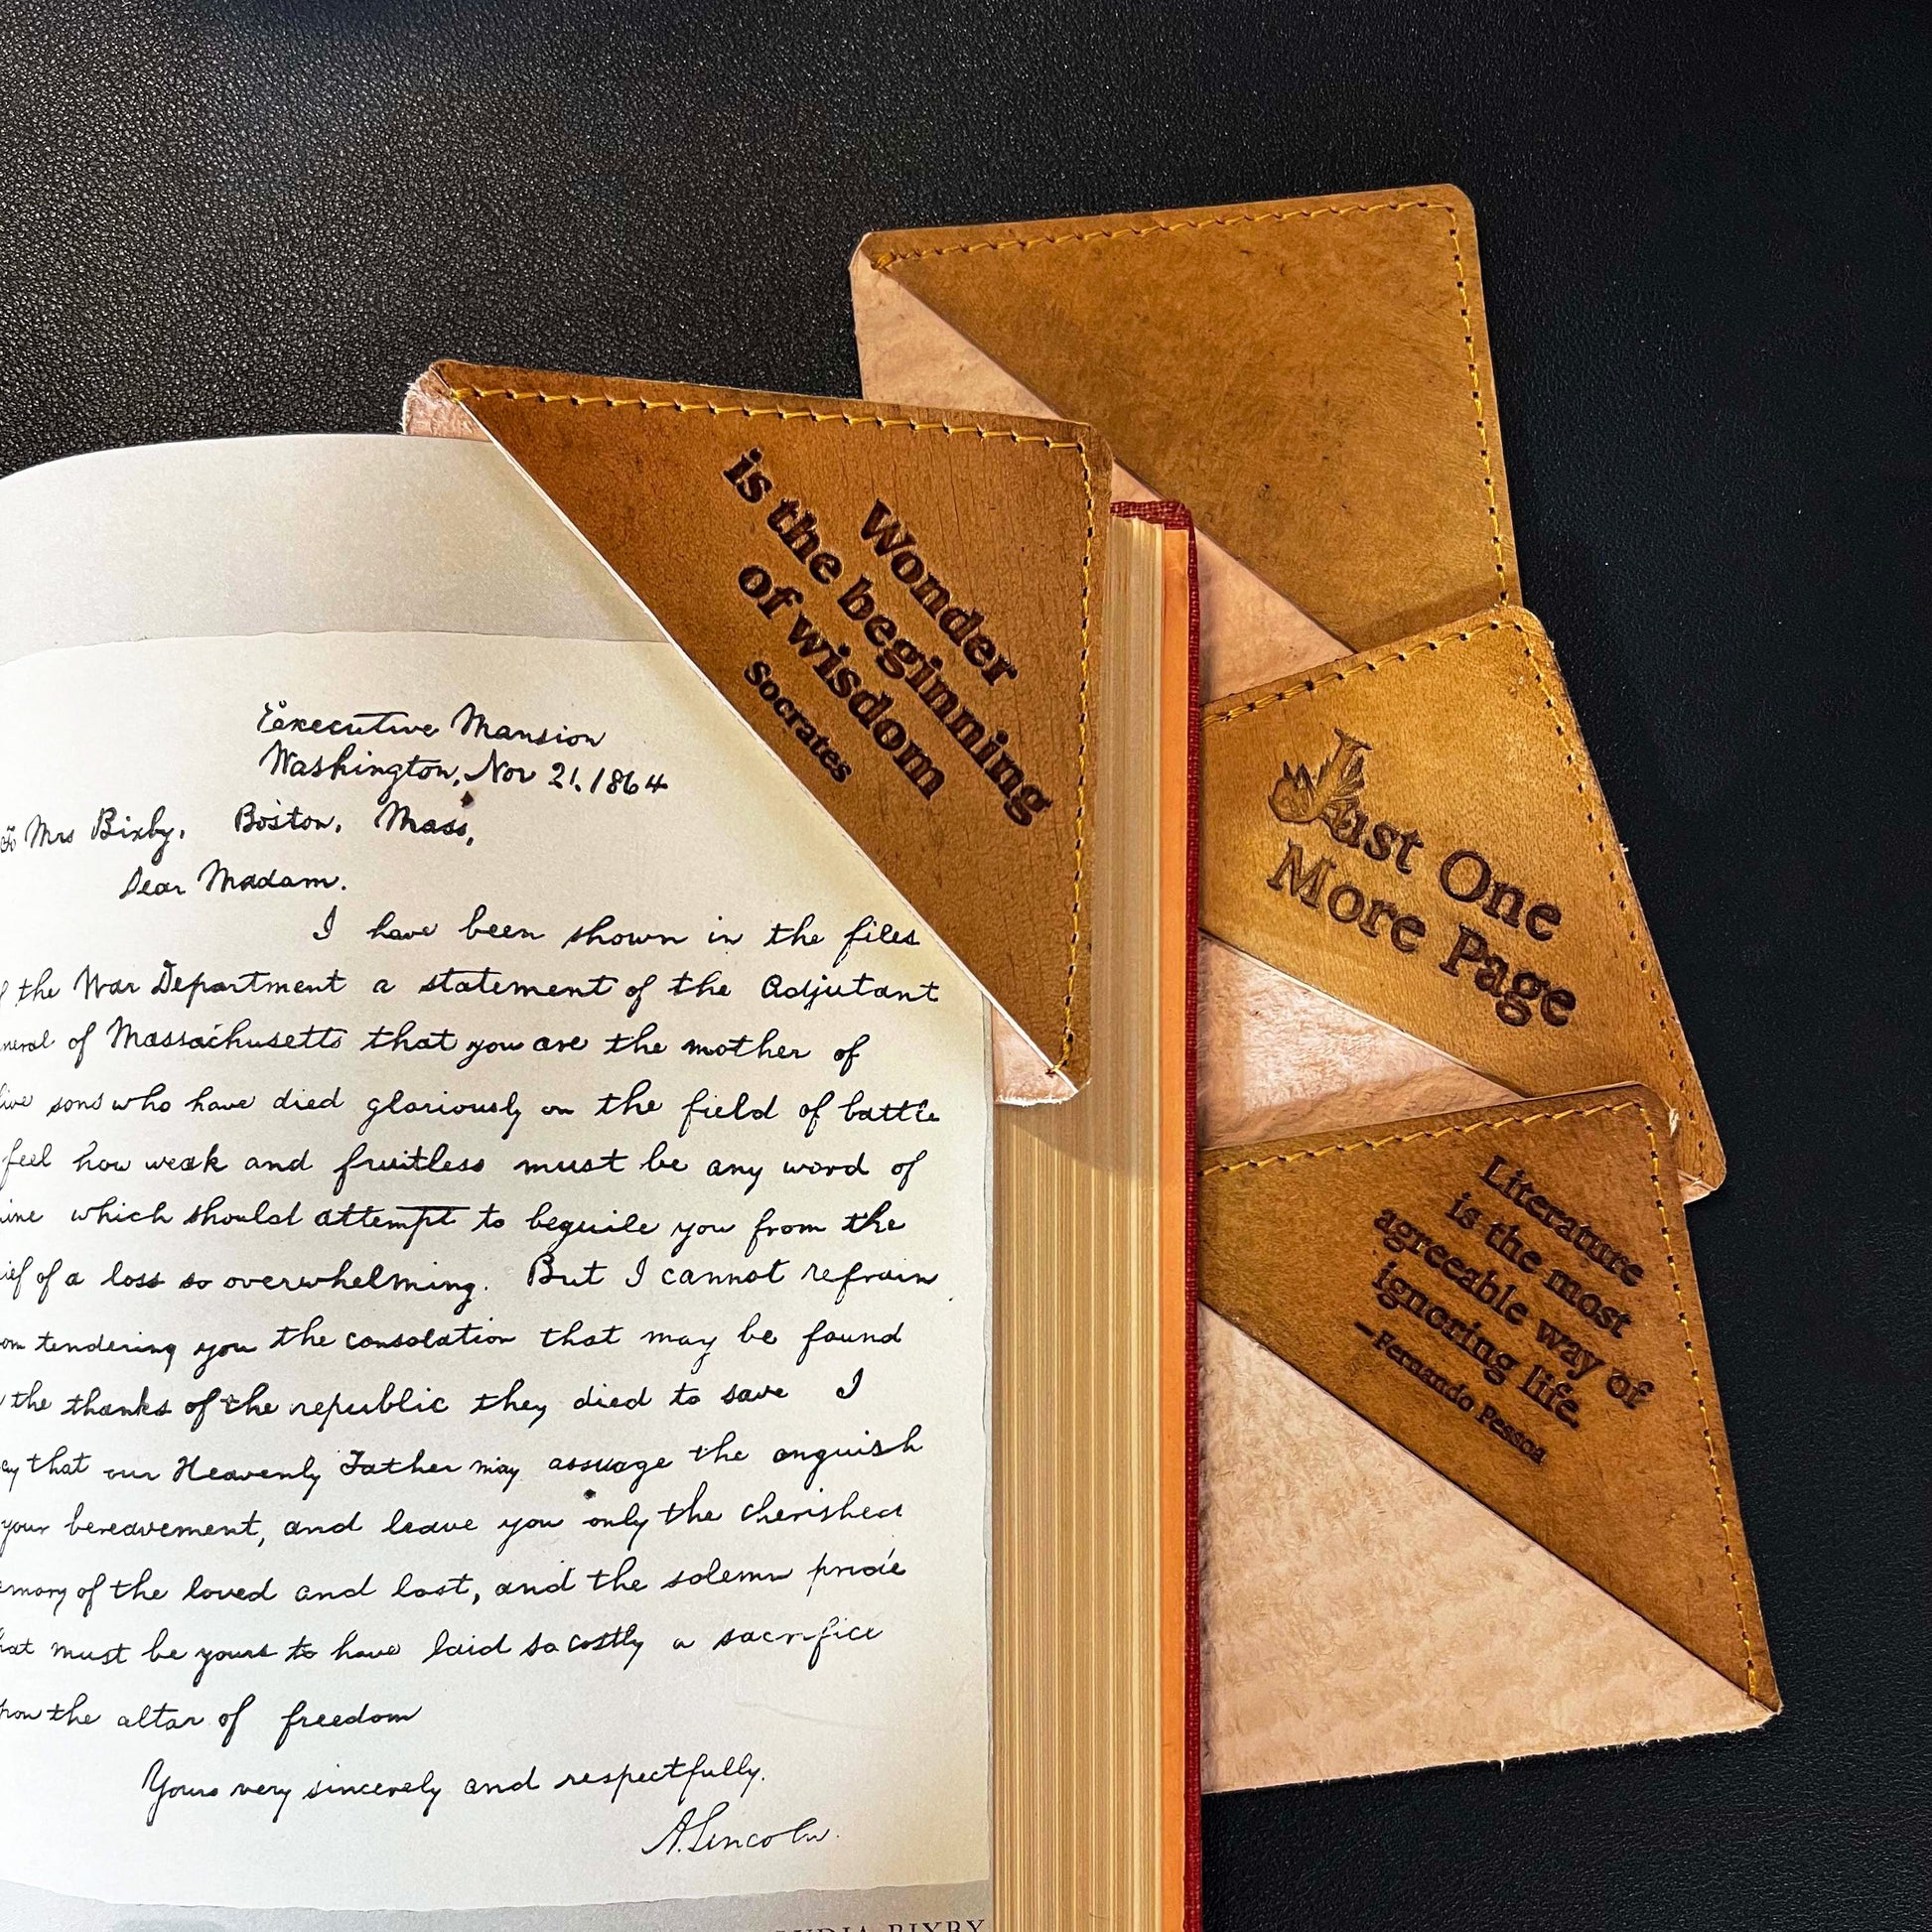 Executive Mansion
Washington, Nov 21, 1864
To Mrs Bixby, Boston, Mass,
Dear Madam.
I have been shown in the files
of the War Department a statement of the Adjutant
neral of Massachusetts that you are the mother of
five sons who have died gloriously on the field of battle
feel how weak and fruitless must be any word of
ine which should attempt to beguile you from the
ief of a loss so overwhelming. But I cannot refrain
om tendering you the consolation that may be found
the thanks of the republic they died to save I
ay that our Heavenly Father may assuage the anguish
your bereavement, and leave you only the cherished
emory of the loved and lost, and the solemn pride
hat must be yours to have laid so costly a sacrifice
pon the altar of freedom
Yours very sincerely and respectfully.
A. Lincoln.
LYDIA BIXBY
Wonder
is the beginning
of wisdom
Socrates
Just One
More Page
Literature
is the most
agreeable way of
ignoring life.
—Fernando Pessoa